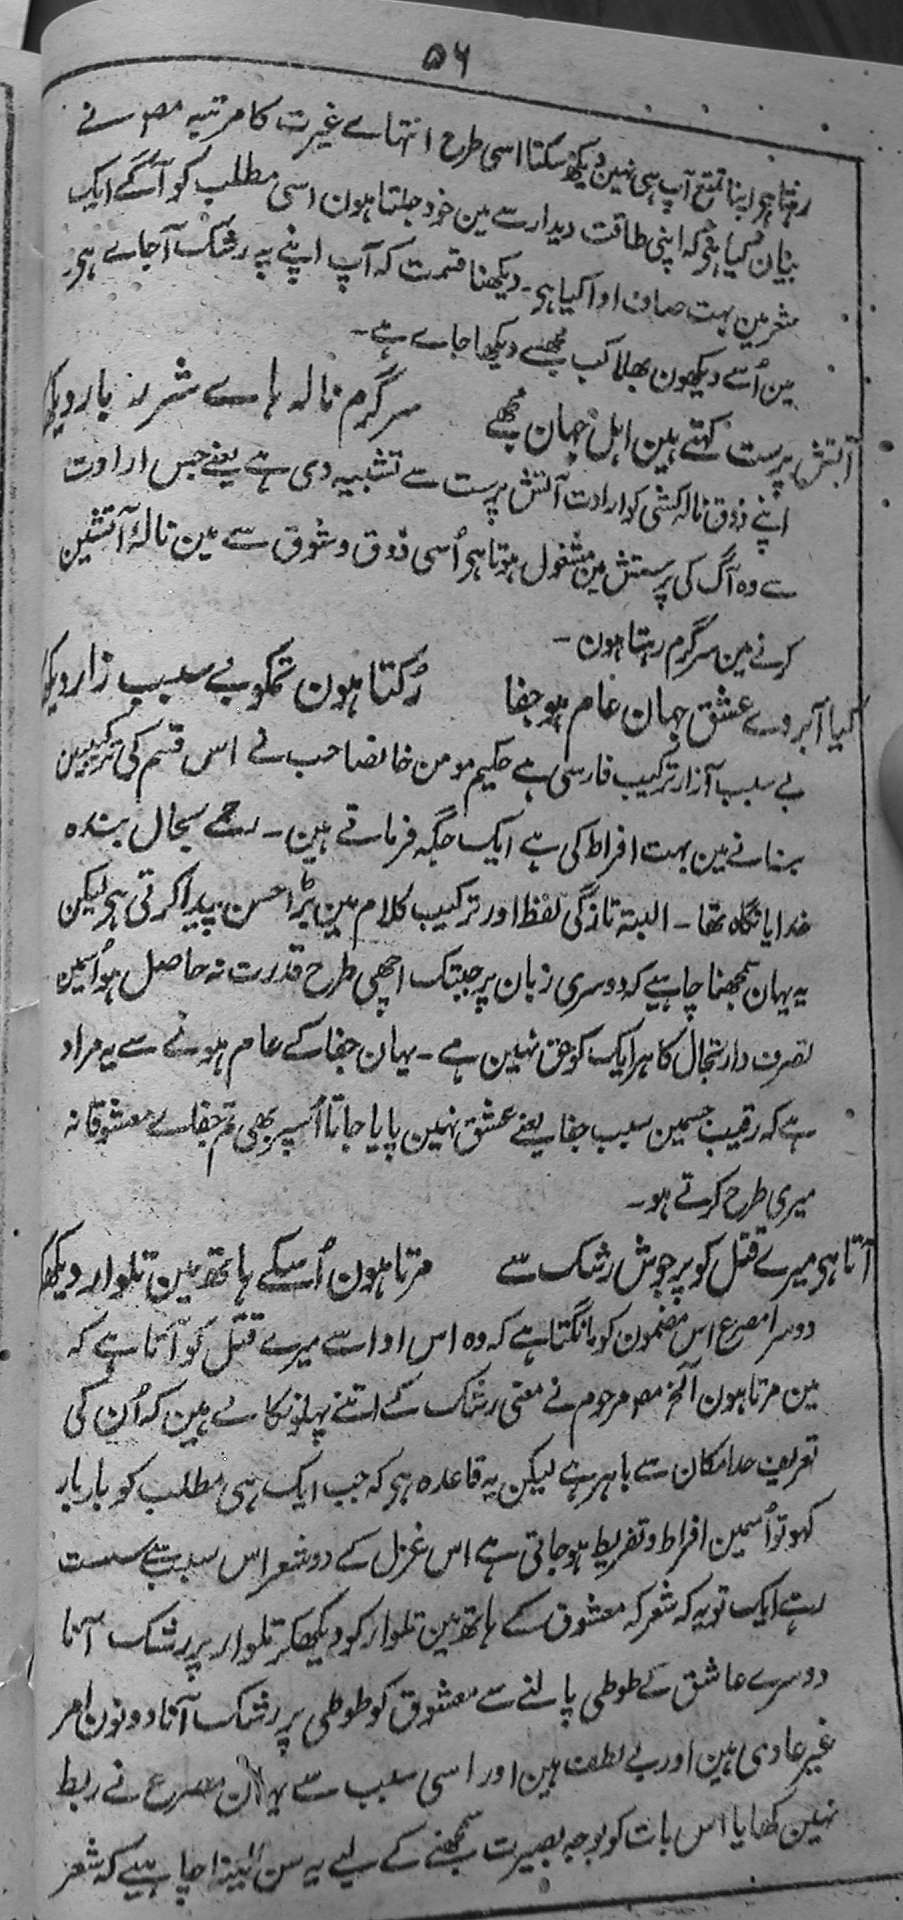 ۵۶
رہتا ہر اپنا تمتع آپ ہی نہین دیکھ سکتا اسی طرح انتہاے غیرت کا مرتبہ مصہ نے
بیان کیا ہی کہ اپنی طاقت دیدار سے مین خود جلتا ہون اسی مطلب کو آگے ایک
شعر مین بہت صاف ادا کیا ہی۔ دیکھنا قسمت کہ آپ اپنے پہ رشک آجاے ہی
مین اُسے دیکھون بھلا کب مجھسے دیکھا جاے ہے۔
آتش پرست کہتے ہین اہل جہان مجھے سرگرم نالہ ہاے شرر بار دیکھ
اپنے ذوق نالہ کشی کو ارادت آتش پرست سے تشبیہ دی ہے یعنے جس ارادت
سے وہ آگ کی پرستش مین مشغول ہوتا ہی اُسی ذوق و شوق سے مین نالۂ آتشین
کرنے مین سرگرم رہتا ہون۔
کیا آبروے عشق جہان عام ہو جفا رُکتا ہون تمکو بے سبب آزار دیکھ
بے سبب آزار ترکیب فارسی ہے حکیم مومن خانصاحب نے اس قسم کی ترکیبین
بنانے مین بہت افراط کی ہے ایک جگہ فرماتے ہین۔ رحمے بحال بندہ
خدایا نگاہ تھا۔ البتہ تازگی لفظ اور ترکیب کلام مین بڑا حسن پیدا کرتی ہی لیکن
یہ یہان سمجھنا چاہیے کہ دوسری زبان پر جبتک اچھی طرح قدرت نہ حاصل ہو اُسمین
تصرف و ارتجال کا ہر ایک کو حق نہین ہے۔ یہان جفا کے عام ہونے سے یہ مراد
ہے کہ رقیب جسمین سبب جفا یعنے عشق نہین پایا جاتا اُسپر بھی تم جفاے معشوقانہ
میری طرح کرتے ہو۔
آتا ہی میرے قتل کو پر جوش رشک سے مرتا ہون اُسکے ہاتھ مین تلوار دیکھ
دوسرا مصرع اس مضمون کو مانگتا ہے کہ وہ اس ادا سے میرے قتل کو آتا ہے کہ
مین مرتا ہون الخ مصہ مرحوم نے معنی رشک کے اتنے پہلو نکالے ہین کہ اُن کی
تعریف حد امکان سے باہر ہے لیکن یہ قاعدہ ہی کہ جب ایک ہی مطلب کو بار بار
کہو تو اُسمین افراط و تفریط ہو جاتی ہے اس غزل کے دو شعر اس سبب سے سست
رہے ایک تو یہ کہ شعر کہ معشوق کے ہاتھ مین تلوار کو دیکھکر تلوار پر رشک آنا
دوسرے عاشق کے طوطی پالنے سے معشوق کو طوطی پر رشک آنا دونون امر
غیر عادی ہین اور بے لطف ہین اور اسی سبب سے یہان مصرع نے ربط
نہین کھایا اس بات کو بوجہ بصیرت سمجھنے کے لیے یہ سن لینا چاہیے کہ شعر